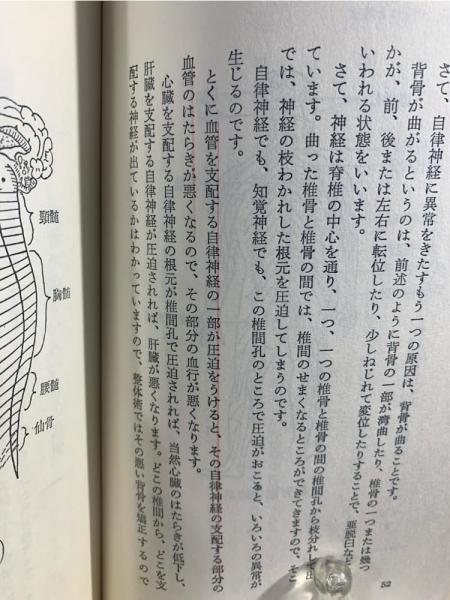 さて、自律神経に異常をきたすもう一つの原因は、背骨が曲ることです。
背骨が曲がるというのは、前述のように背骨の一部が湾曲したり、椎骨の一つまたは幾つ
かが、前、後または左右に転位したり、少しねじれて変位したりすることで、亜脱臼など
いわれる状態をいいます。
さて、神経は脊椎の中心を通り、一つ、一つの椎骨と椎骨の間の椎間孔から枝分れして出
ています。曲った椎骨と椎骨の間では、椎間のせまくなるところができてきますので、そこ
では、神経の枝わかれした根元を圧迫してしまうのです。
自律神経でも、知覚神経でも、この椎間孔のところで圧迫がおこると、いろいろの異常が
生じるのです。
とくに血管を支配する自律神経の一部が圧迫をうけると、その自律神経の支配する部分の
血管のはたらきが悪くなるので、その部分の血行が悪くなります。
心臓を支配する自律神経の根元が椎間孔で圧迫されれば、当然心臓のはたらきが低下し、
肝臓を支配する自律神経が圧迫されれば、肝臓が悪くなります。どこの椎間から、どこを支
配する神経が出ているかはわかっていますので、整体術ではその悪い背骨を矯正するので
52
頸髄
胸髄
腰髄
仙骨